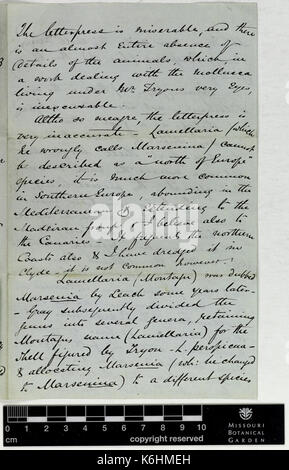 The letterpress is miserable, and there
is an almost entire absence of
details of the animals, which in
a work dealing with the mollusca
living under Mr. Tryons very eyes,
is inexcusable.
Altho so meagre, the letterpress is
very inaccurate. Lamellaria (which
he wrongly calls Marsenina) cannot
be described as a "north of Europe"
species, it is much more common
in Southern Europe, abounding in the
Mediterranean & extending to the
Madeiran group & I believe also to
the Canaries. The northern
Coasts also & I have dredged it in
Clyde - it is not common however.
Lamellaria (Montagu) was dubbed
Marsenia by Leach some years later -
Gray subsequently divided the
genus into several genera, retaining
Montagus name (Lamellaria) for the
Shell figured by Tryon - L. perspicua -
& allocating Marsenia (wh: he changed
to Marsenina) to a different species
alamy
0 cm 1 2 3 4 5 6 7 8 9 10
copyright reserved
MISSOURI
BOTANICAL
GARDEN
alamy
Image ID: K6HMEH
www.alamy.com